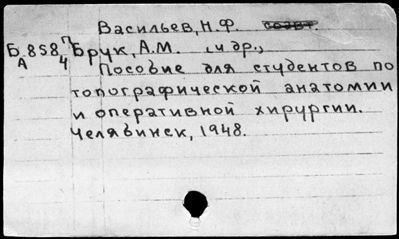 Васильев, Н.Ф.
Б.858 П Брук, А.М. (и др.,
А 4
Пособие для студентов по
топографической анатомии
и оперативной хирургии.
Челябинск, 1948.